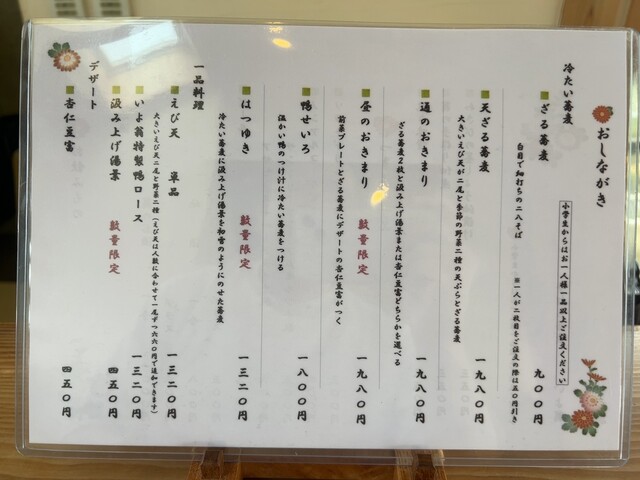 おしながき
小学生からはお一人様一品以上ご注文ください
冷たい蕎麦
ざる蕎麦 九〇〇円
白目で細打ちの二八そば ※一人が二枚目をご注文の際は五〇円引き
天ざる蕎麦 一九八〇円
大きいえび天が二尾と季節の野菜二種の天ぷらとざる蕎麦
通のおきまり 一九八〇円
ざる蕎麦2枚と汲み上げ湯葉または杏仁豆富どちらかを選べる
昼のおきまり 数量限定 一九八〇円
前菜プレートとざる蕎麦にデザートの杏仁豆富がつく
鴨せいろ 一八〇〇円
温かい鴨のつけ汁に冷たい蕎麦をつける
はつゆき 数量限定 一三二〇円
冷たい蕎麦に汲み上げ湯葉を初雪のようにのせた蕎麦
一品料理
えび天 単品 一三二〇円
大きいえび天二尾と野菜二種(えび天は人数に合わせて一尾ずつ六六〇円で追加できます)
いよ翁特製鴨ロース 一三二〇円
汲み上げ湯葉 数量限定 四五〇円
デザート
杏仁豆富 四五〇円